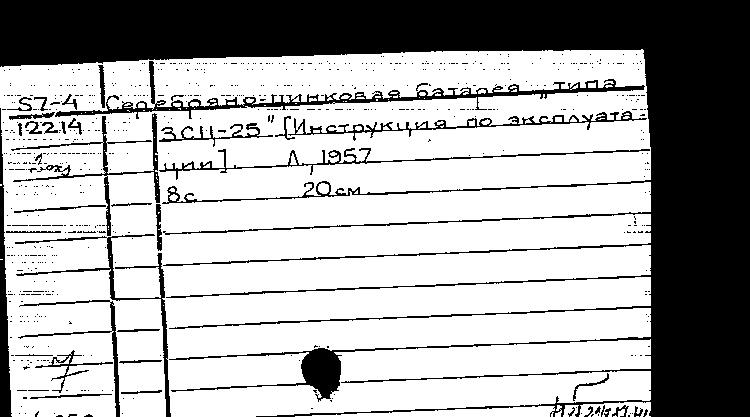 57-4 Серебряно-цинковая батарея „типа
12214 ЗСЦ-25" [Инструкция по эксплуата-
ции]. Л., 1957
8с 20см.